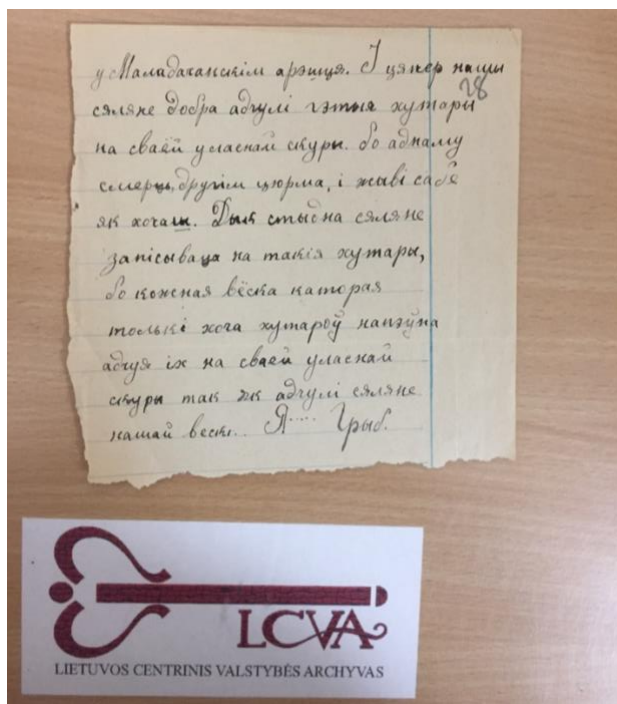 у Маладачанскім арэшця. І цяпер нашы
28
сяляне добра адчулі гэтыя хутары
на сваёй уласнай скуры. бо аднаму
смерць, другім цюрма, і жыві сабе
як хочаш. Дык стыдна сяляне
запісываца на такія хутары,
бо кожная вёска каторая
толькі хоча хутароў напэўна
адчуя іх на сваей уласнай
скуры так як адчулі сяляне
нашай вескі. Я..... Грыб.
LCVA
LIETUVOS CENTRINIS VALSTYBĖS ARCHYVAS